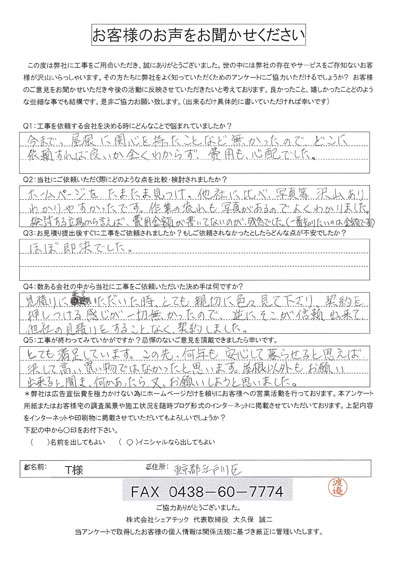 お客様のお声をお聞かせください
この度は弊社に工事をご用命いただき、誠にありがとうございました。世の中には弊社の存在やサービスをご存知ないお客
様が沢山いらっしゃいます。その方たちに弊社をよく知っていただくためのアンケートにご協力いただけるでしょうか？ お客様
のご意見をお聞かせいただき今後の活動に反映させていただきたいと考えております。良かったこと、嬉しかったことどのよう
な些細な事でも結構です。是非ご協力お願い致します。（出来るだけ具体的に書いていただければ幸いです）
Q1:工事を依頼する会社を決める時にどんなことで悩まれていましたか？
今まで、屋根に関心を持ったことなど無かったので、どこに
依頼すれば良いか全くわからず、費用も心配でした。
Q2:当社にご依頼いただく際にどのような点を比較・検討されましたか？
ホームページをたまたま見つけ。他社に比べ、写真等沢山あり
わかりやすかったです。作業の流れも写真があるのでよくわかりました。
検討する立場から言えば、費用金額が書いてないのが、残念でした(一番知りたいのは金額です)
Q3:お見積り提出後すぐに工事をご依頼されましたか？もしご依頼されなかったとしたらどんな点が不安でしたか？
ほぼ即決でした。
Q4:数ある会社の中から当社に工事をご依頼いただいた決め手は何ですか？
見積りにいただいた時、とても親切に色々見て下さり、契約を
押しつける感じが一切無かったので、逆にそこが信頼出来て、
他社の見積りをすることなく契約しました。
Q5:工事が終わってみていかがですか？忌憚のないご意見を頂戴できましたら幸いです。
とても満足しています。この先、何年も安心して暮らせると思えば
決して高い買い物ではなかったと思います。屋根以外もお願い
出来ると聞き、何かあったら又、お願いしようと思いました。
＊弊社は広告宣伝費を極力かけない為にホームページだけを頼りにお客様への営業活動を行っております。本アンケート
用紙またはお客様宅の調査風景や施工状況を随時ブログ形式のインターネットに掲載させていただいております。上記内容
をインターネットや印刷物に掲載させていただいてもよろしいでしょうか？
下記の中から〇印をお付け下さい。
（　）名前を出してもよい　（〇）イニシャルなら出してもよい
お名前:　T様　ご住所:　東京都江戸川区
渡邉
FAX 0438－60－7774
ご協力ありがとうございました。
株式会社シェアテック 代表取締役 大久保 誠二
当アンケートで取得したお客様の個人情報は関係法規に基づき厳正に管理いたします。